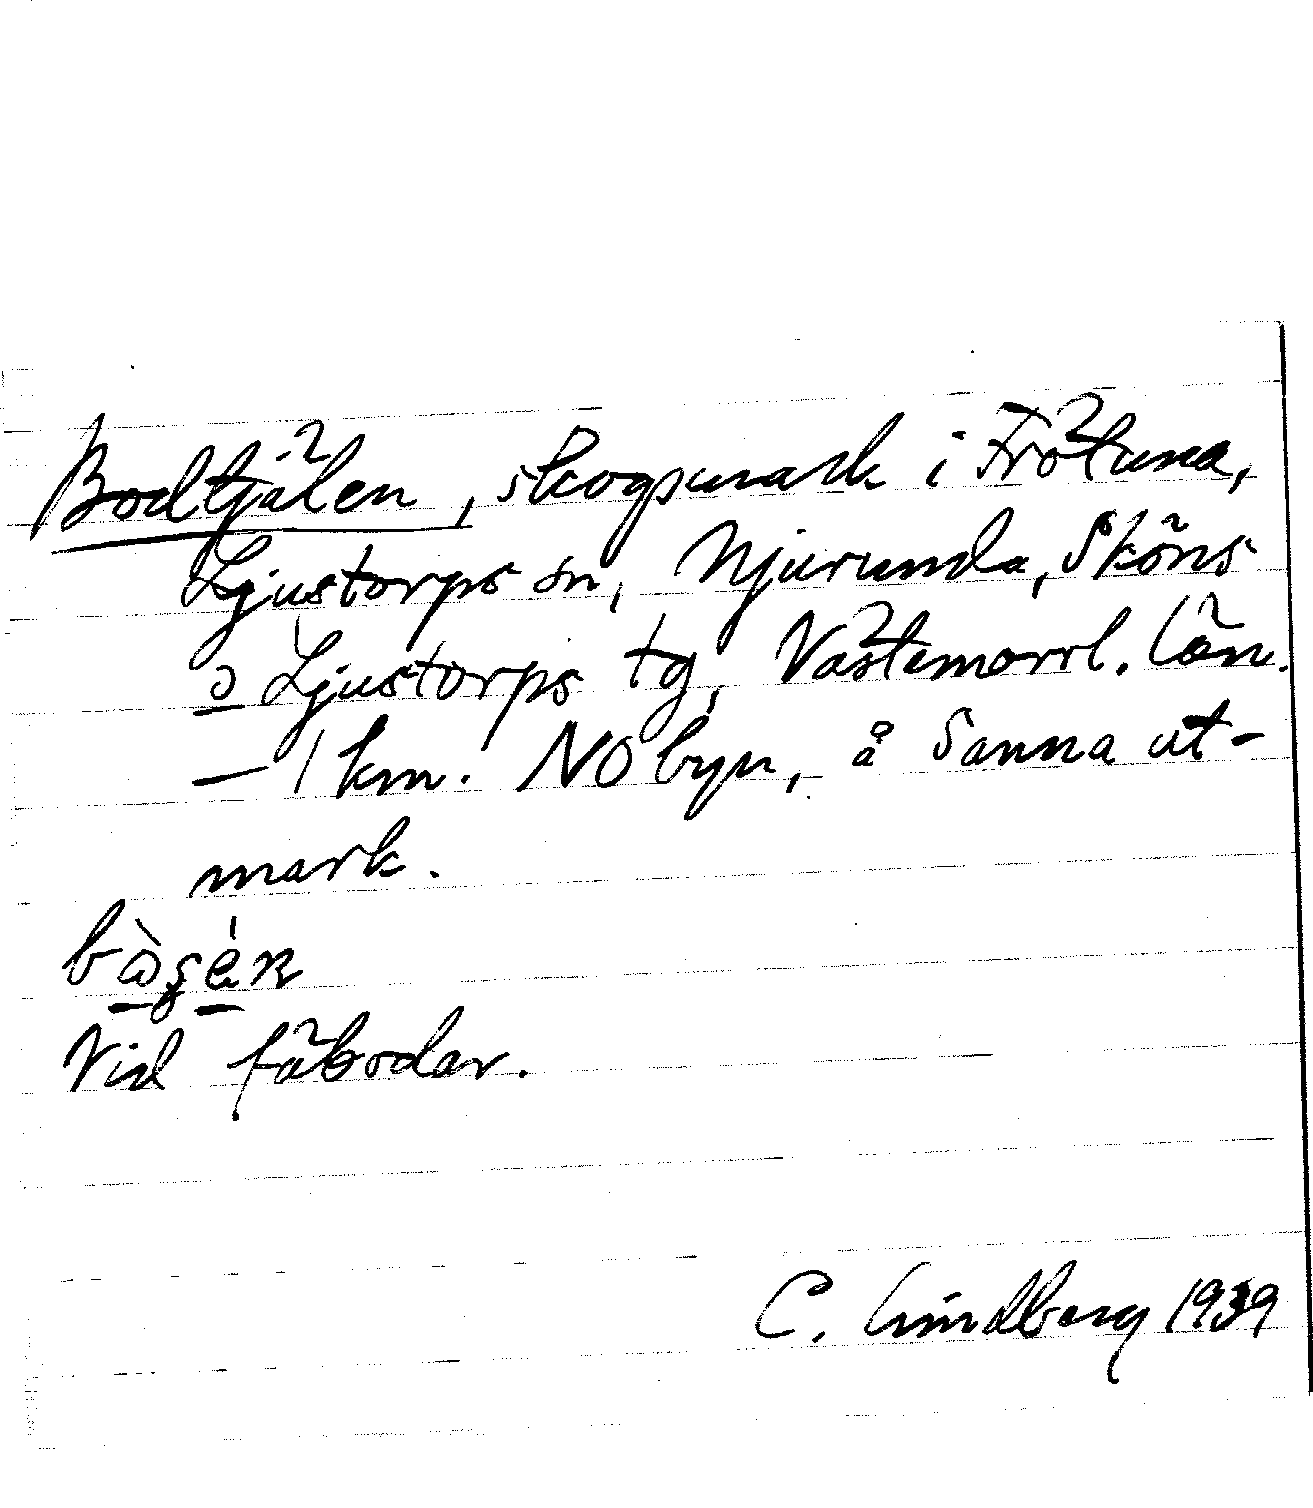 Bodtjälen, skogsmark i Frötuna,
Ljustorps sn, Njurunda, Sköns
o Ljustorps tg, Västernorrl. län.
— 1 km. NO byn, å Sanna ut-
mark.
Vid fäbodar.
C. Lindberg 1939